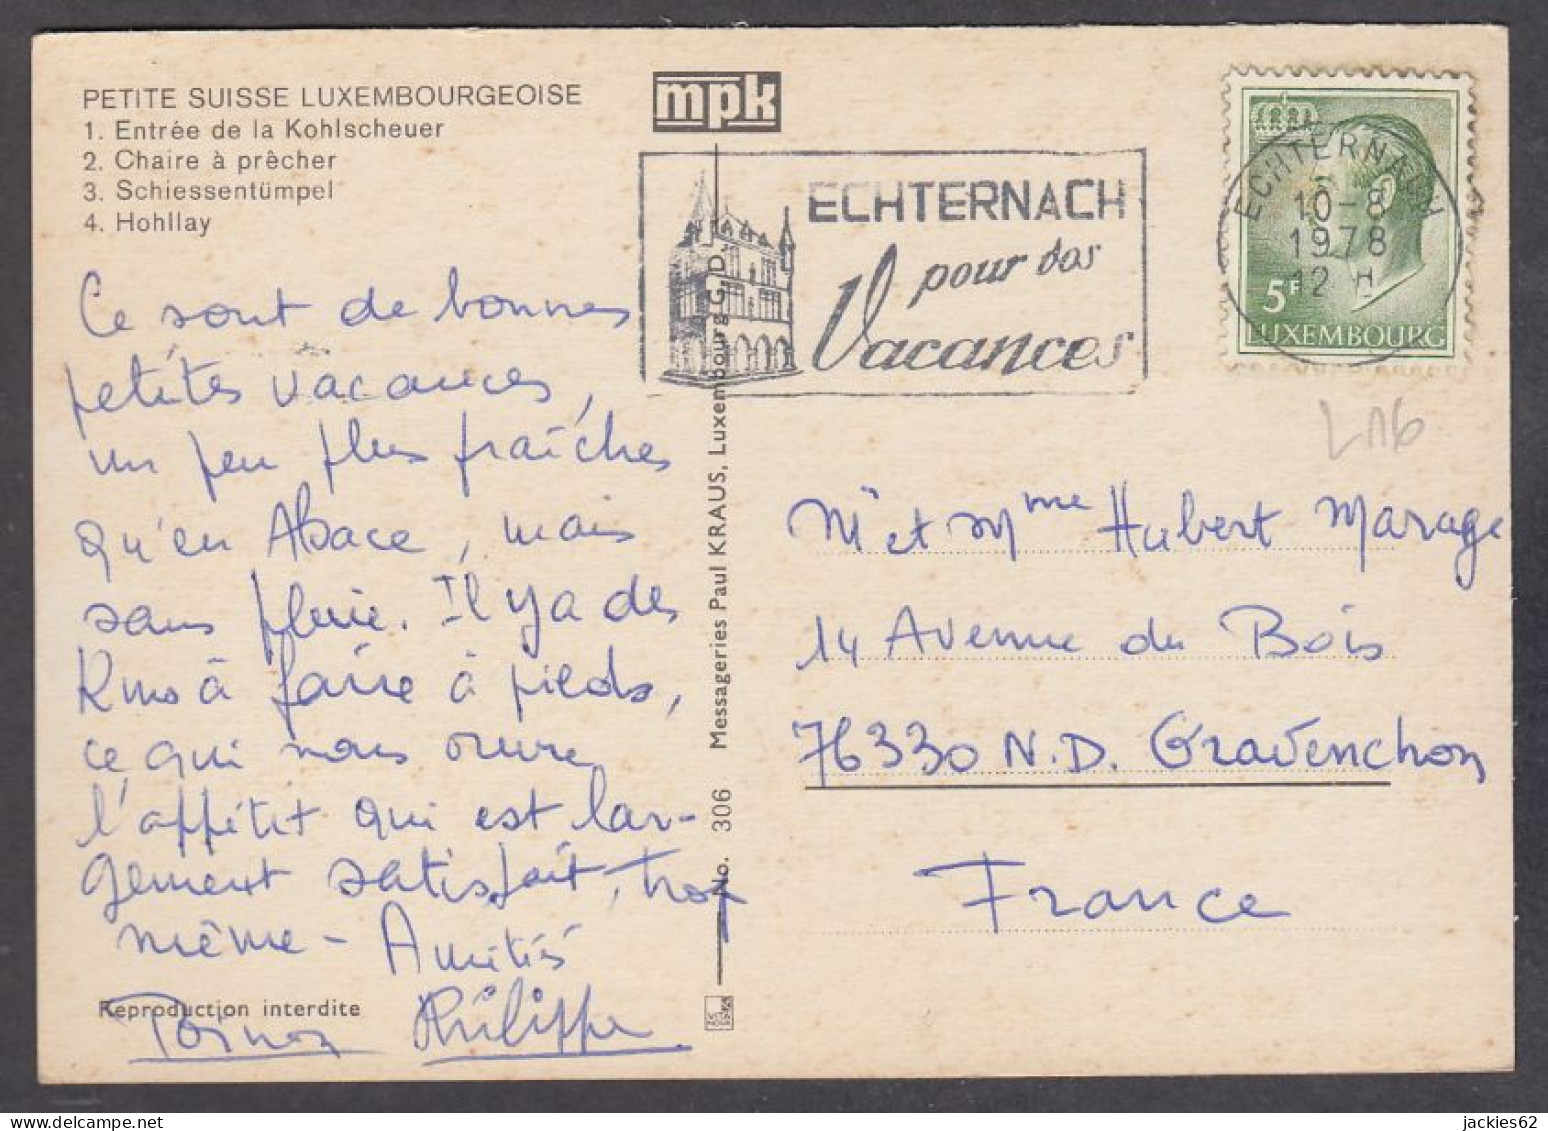 PETITE SUISSE LUXEMBOURGEOISE
1. Entrée de la Kohlscheuer
2. Chaire à prêcher
3. Schiessentümpel
4. Hohllay
mpk
ECHTERNACH
pour vos
Vacances
ECHTERNACH
10-8
1978
12 H
5F
LUXEMBOURG
Ce sont de bonnes
petites vacances,
un peu plus fraîches
qu'en Alsace, mais
sans pluie. Il y a des
Kms à faire à pieds,
ce qui nous ouvre
l'appétit qui est lar-
gement satisfait, trop
même - Amitiés
Philippe
Reproduction interdite
No. 306 Messageries Paul KRAUS, Luxembourg G.D.
VITA
NOVA
L16
Mr et Mme Hubert Marage
14 Avenue du Bois
76330 N.D. Gravenchon
France
jackies62